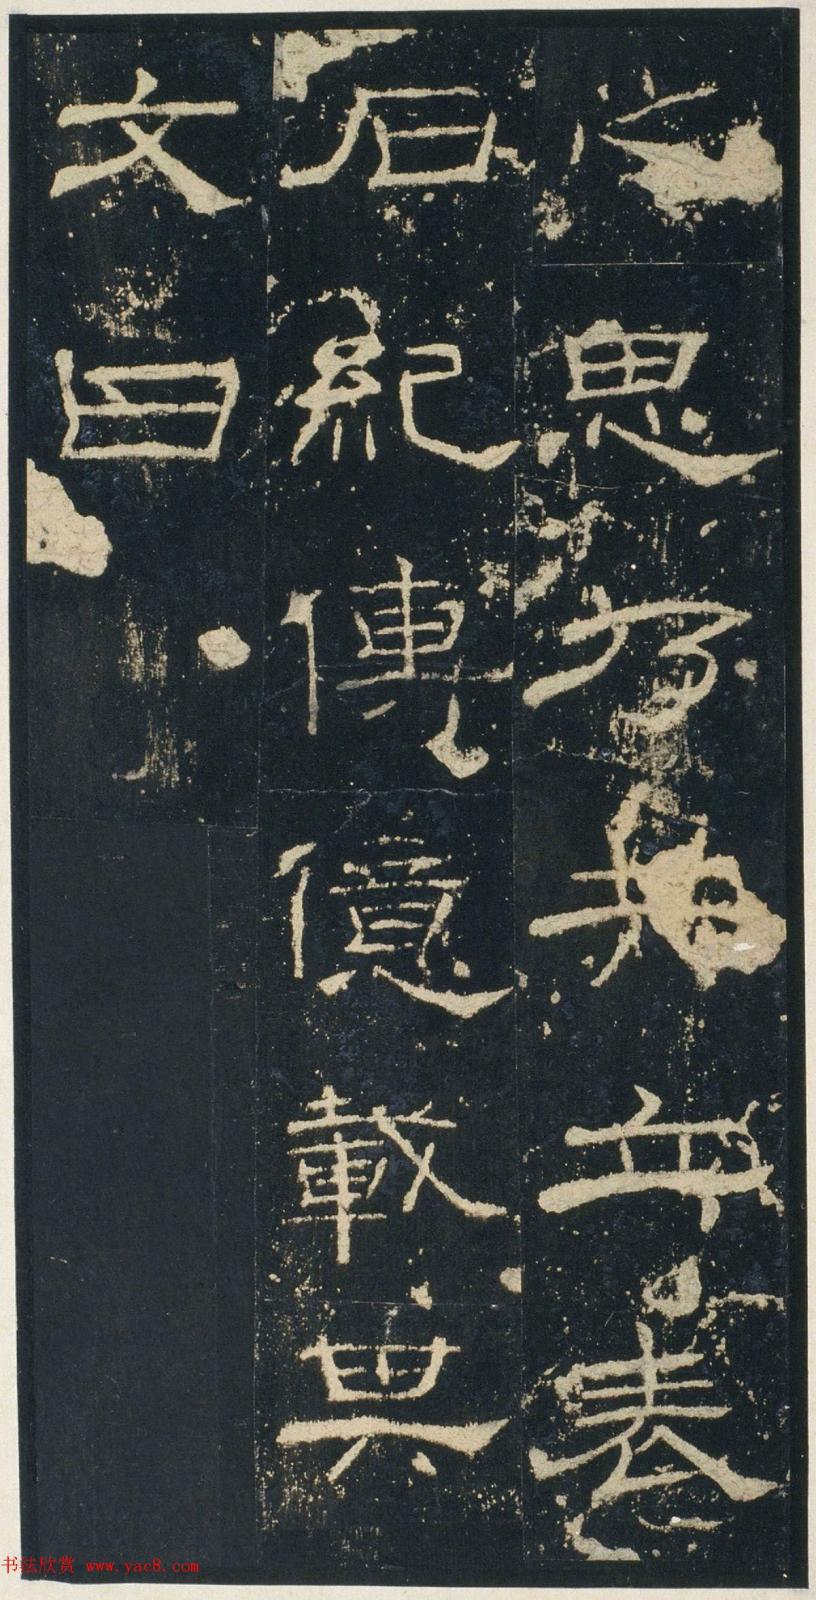 之思乃共立表
石紀傳億載其
文曰
书法欣赏 www.yac8.com